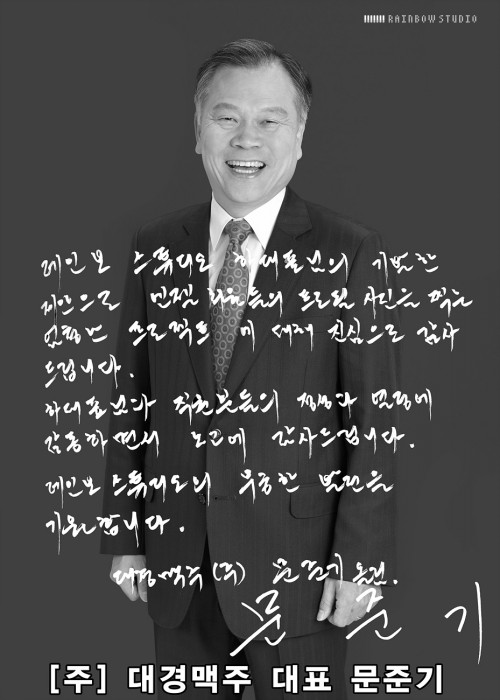 RAINBOW STUDIO
레인보 스튜디오 하대표님의 기발한
제안으로 민정 회원들의 프로필 사진을 찍는
엄청난 프로젝트에 대해 진심으로 감사
드립니다.
하대표님과 직원분들의 정성과 열정에
감동하면서 노고에 감사드립니다.
레인보 스튜디오의 무궁한 발전을
기원합니다.
대경맥주(주) 문준기 올림.
문준기
[주] 대경맥주 대표 문준기